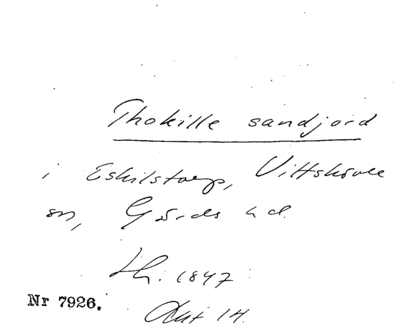 Thokille sandjord
i Eskilstorp, Vittskövle
sn, Gärds hd.
Hh. 1847
Nr 7926.
Akt 14.